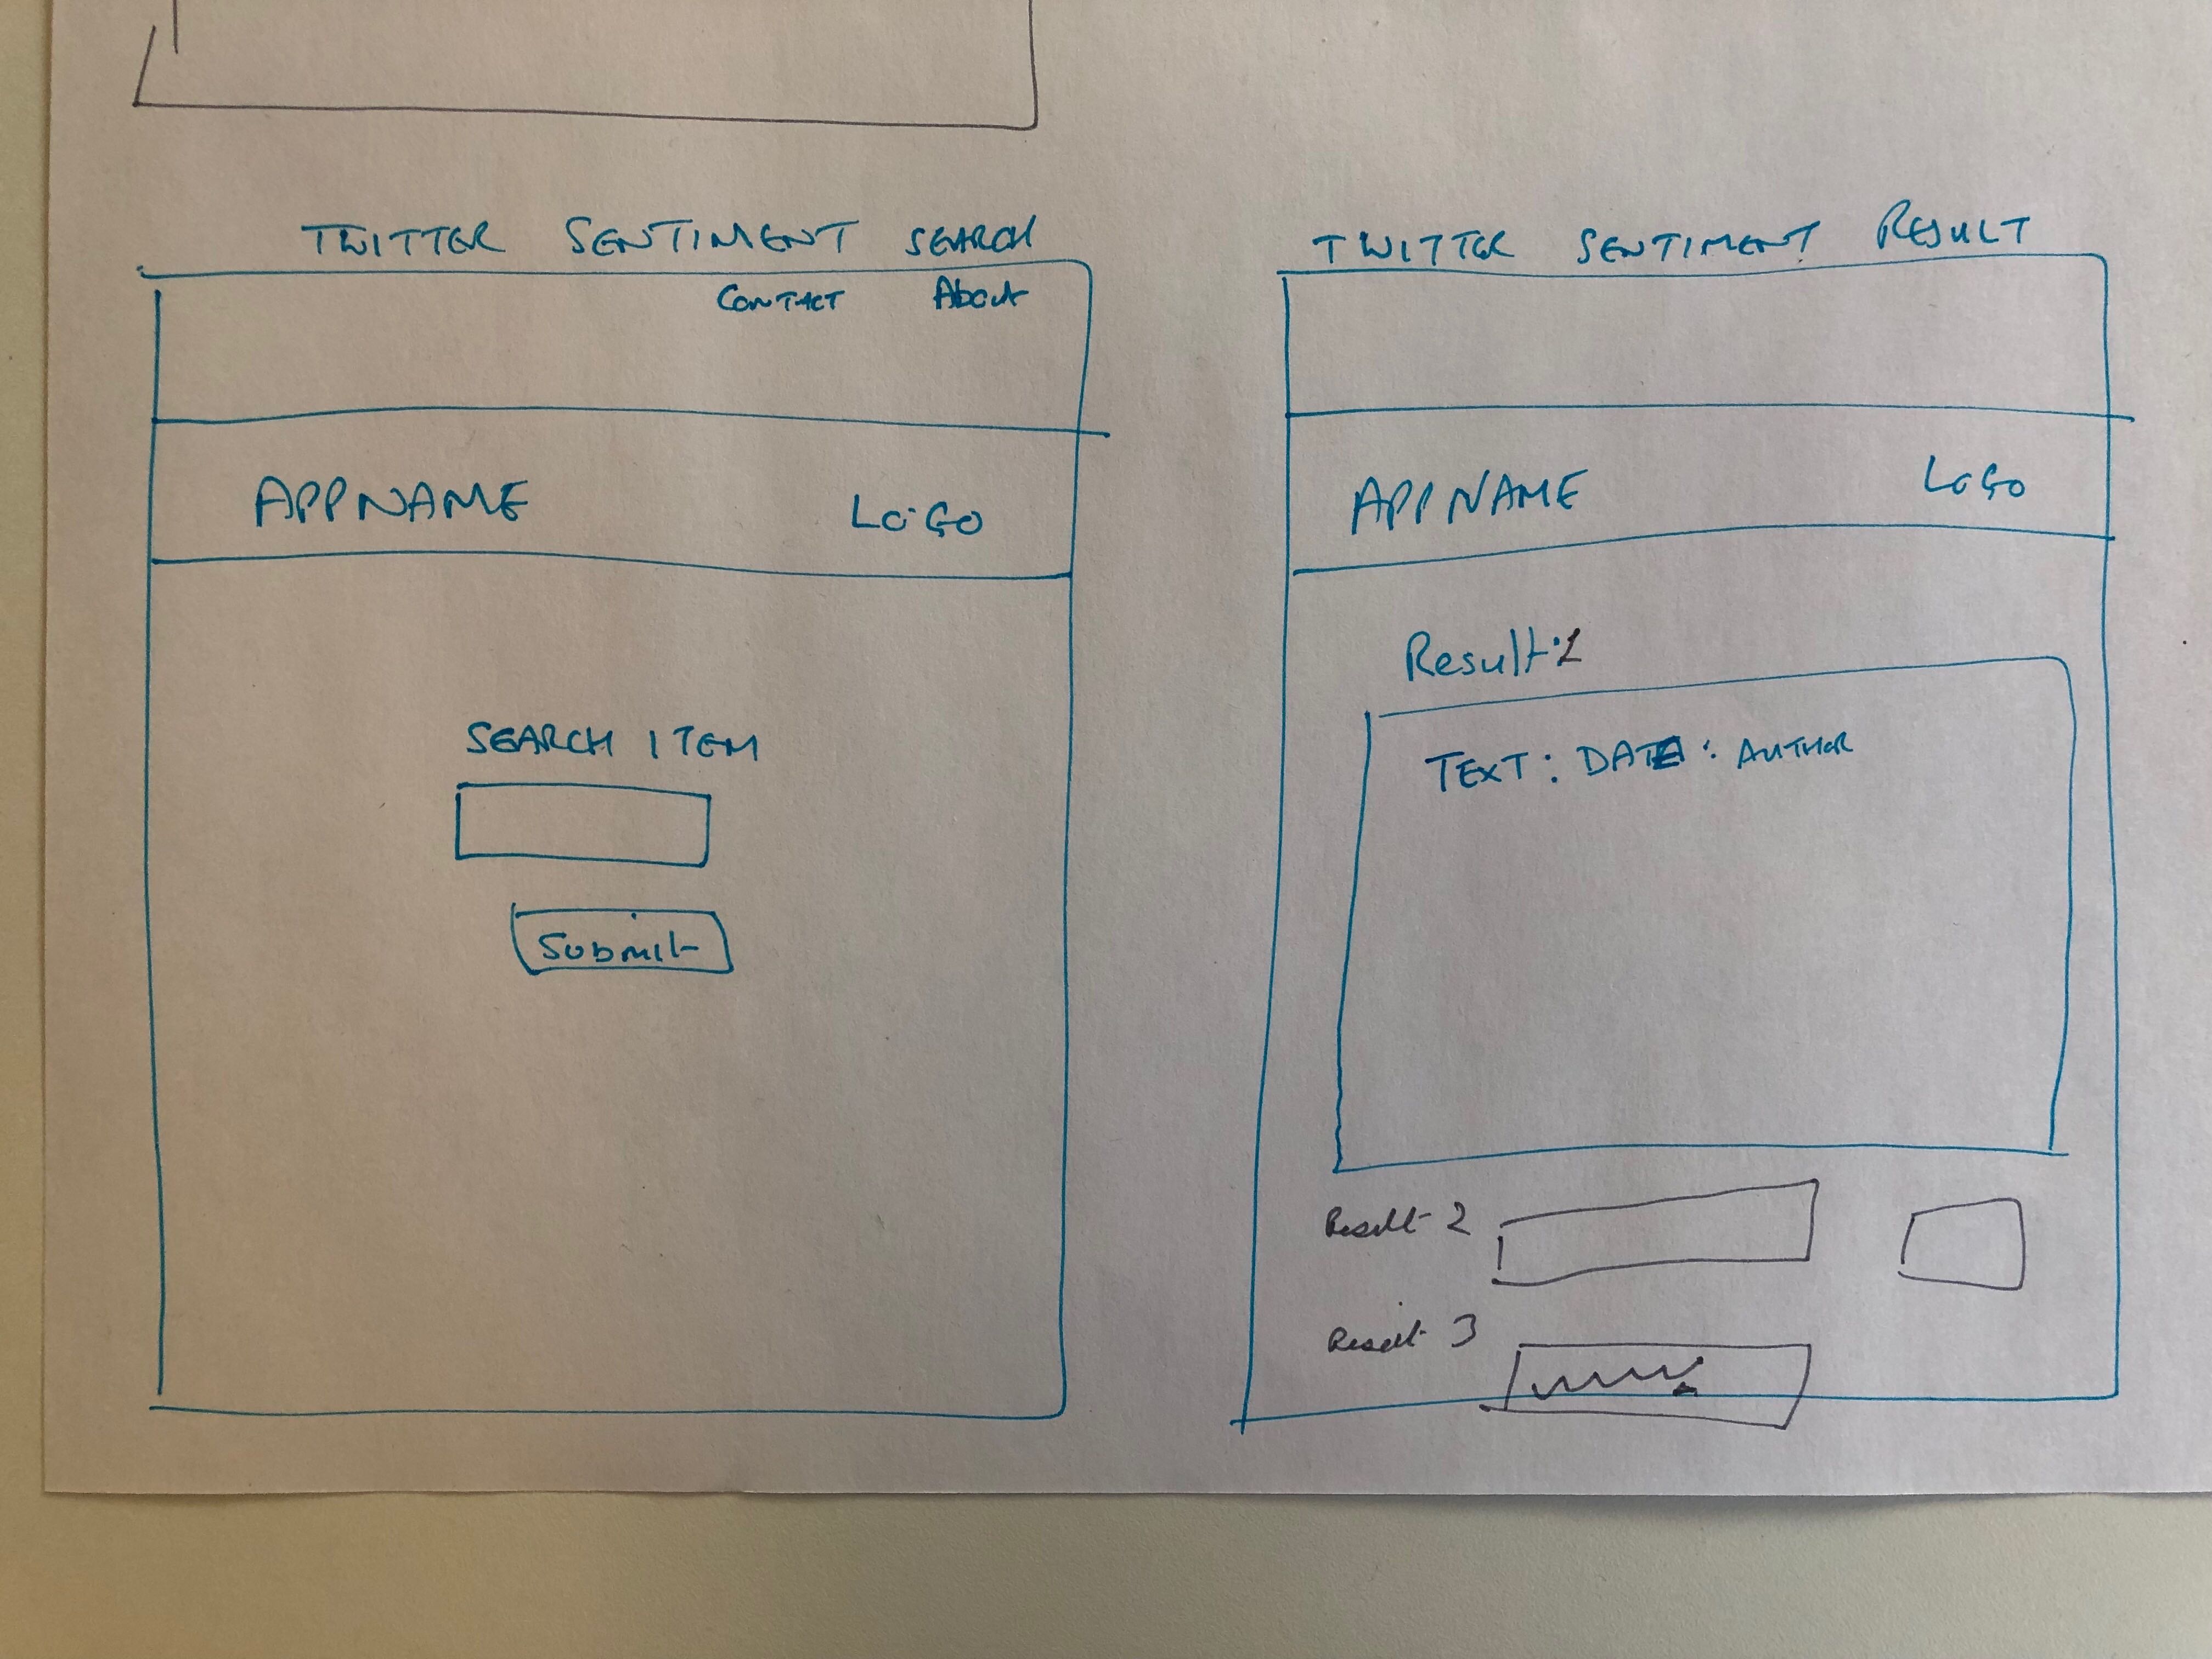 TWITTER SENTIMENT SEARCH
CONTACT About
APPNAME LOGO
SEARCH ITEM
Submit
TWITTER SENTIMENT RESULT
APPNAME LOGO
Result:1
TEXT: DATE: AUTHOR
Result 2
Result 3